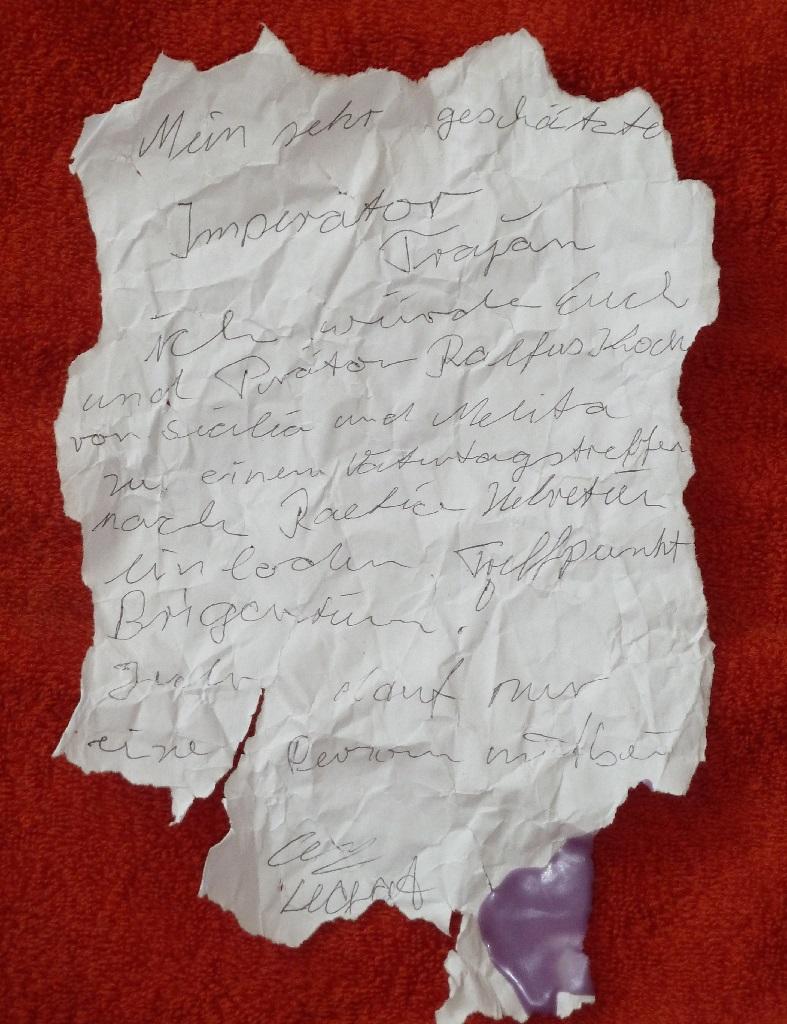 Mein sehr geschätzte
Imperator
Trajan
ich würde Euch
und Prätor Ralfus Koch
von Sicilia und Melita
zu einem Vatertagstreffen
nach Raetia Helvetien
einladen. Treffpunkt
Brigantium!
Jeder darf nur
eine Person mitbei